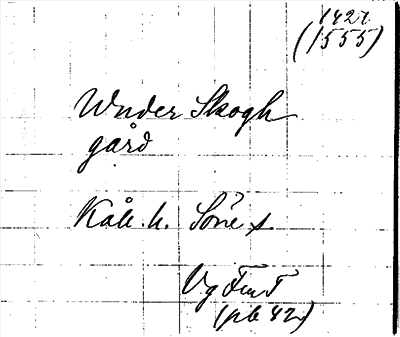 1427
(1555)
Wnder Skogh
gård
Kåk. h. Söne s
Vg
(pb 42)